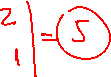 2
1 | = 5